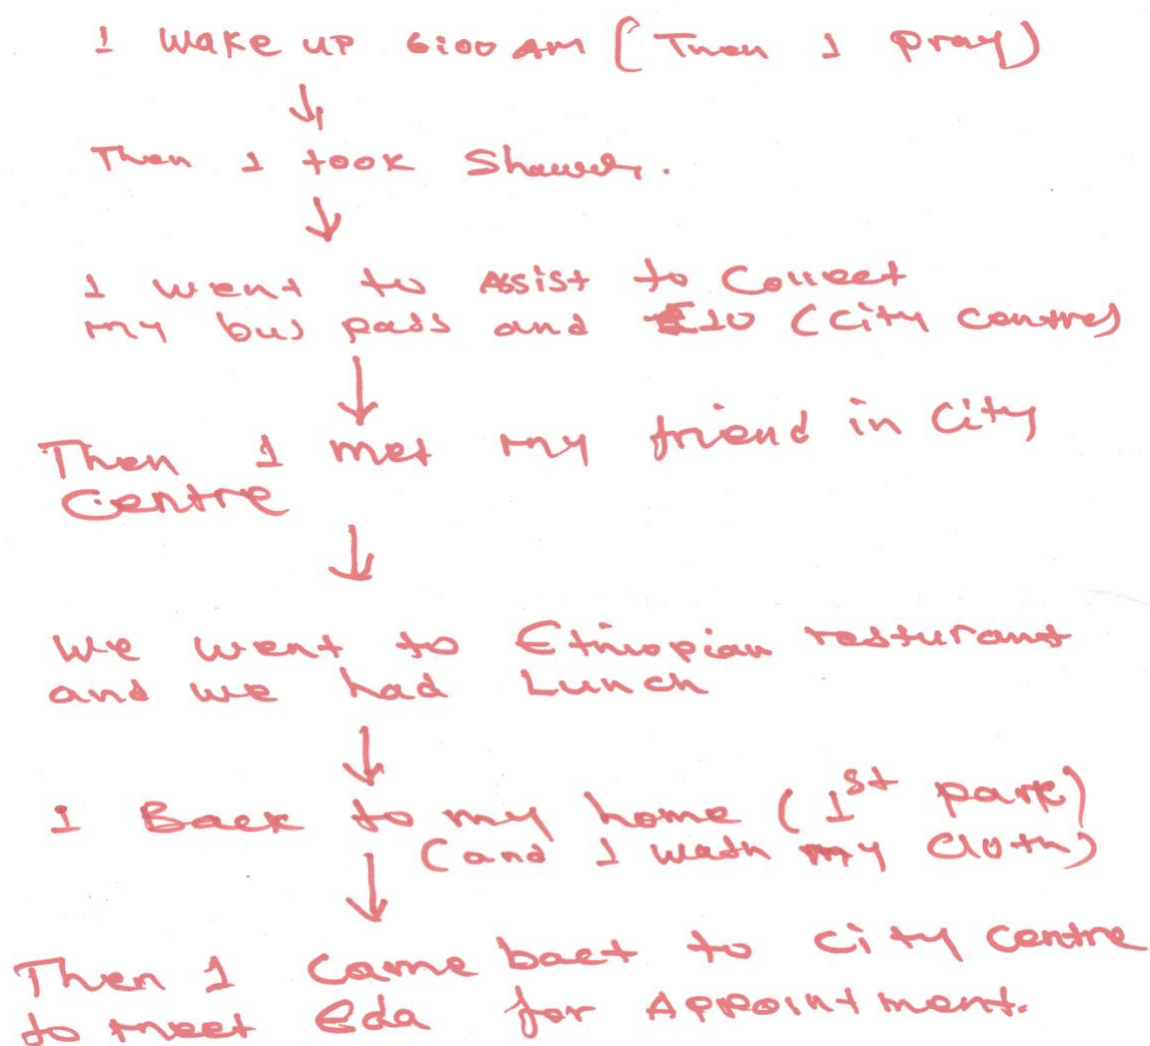 I wake up 6:00 AM (Then I pray)
Then I took Shower.
I went to Assist to Collect
my bus pass and £10 (City centre)
Then I met my friend in City
Centre
We went to Ethiopian resturant
and we had Lunch
I Back to my home (1st park)
(and I wash my cloth)
Then I came back to city centre
to meet Eda for Appointment.